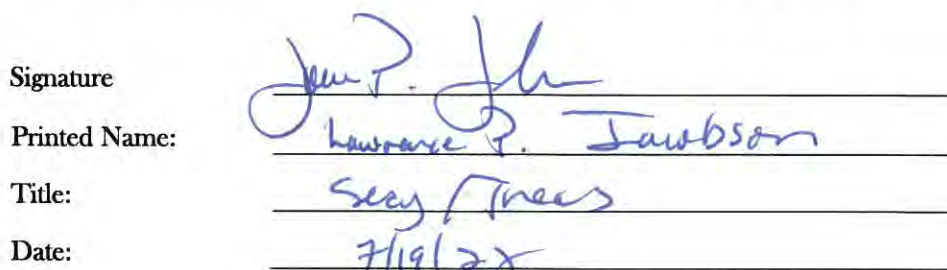 Signature
Printed Name: Lawrence P. Jacobson
Title: Secy / Treas
Date: 7/19/22